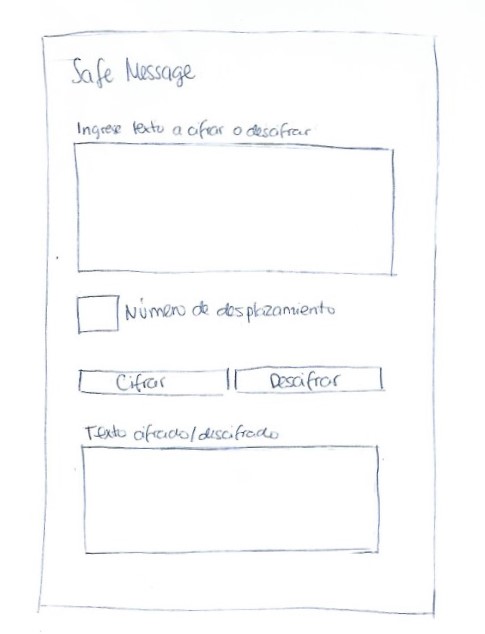 Safe Message
Ingrese texto a cifrar o descifrar
Número de desplazamiento
Cifrar
Descifrar
Texto cifrado/descifrado